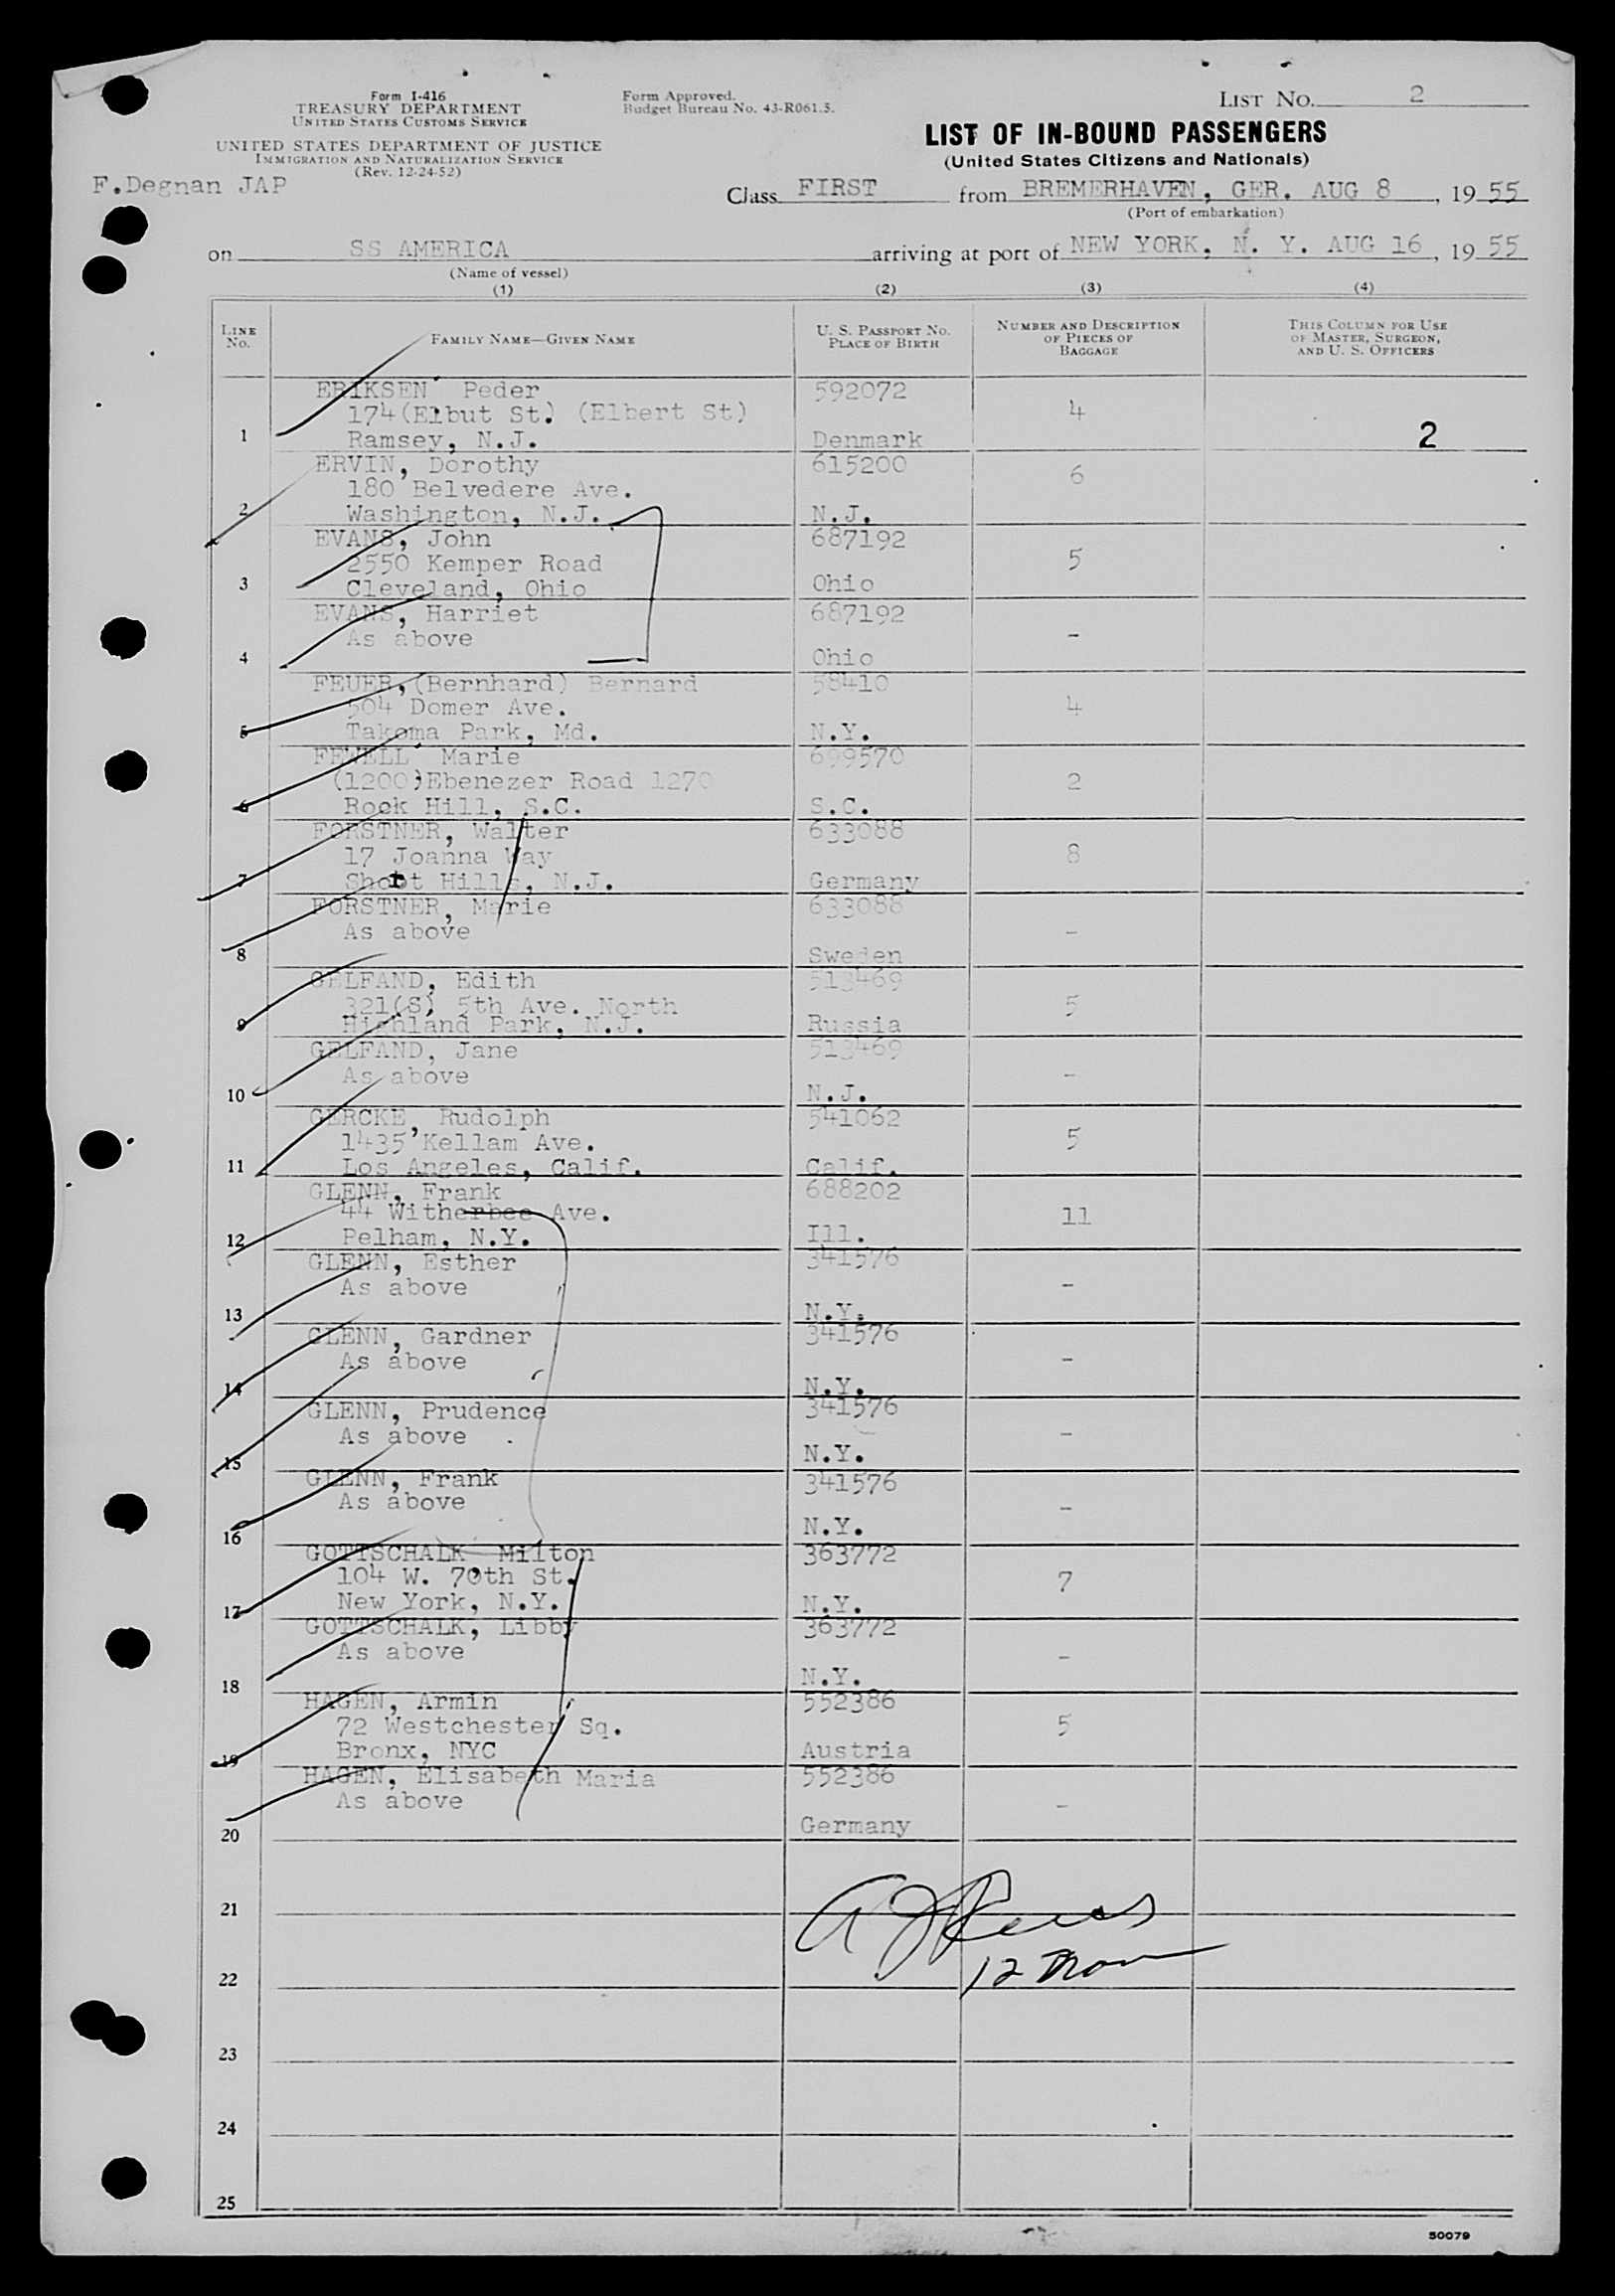 Form I-416
TREASURY DEPARTMENT
UNITED STATES CUSTOMS SERVICE
UNITED STATES DEPARTMENT OF JUSTICE
IMMIGRATION AND NATURALIZATION SERVICE
(Rev. 12-24-52)
Form Approved.
Budget Bureau No. 43-R061.3.
LIST NO. 2
LIST OF IN-BOUND PASSENGERS
(United States Citizens and Nationals)
F.Degnan JAP
Class FIRST from BREMERHAVEN, GER. AUG 8, 19 55
(Port of embarkation)
on SS AMERICA arriving at port of NEW YORK, N. Y. AUG 16, 19 55
(Name of vessel)
(1) (2) (3) (4)
LINE NO. FAMILY NAME—GIVEN NAME U. S. PASSPORT NO. PLACE OF BIRTH NUMBER AND DESCRIPTION OF PIECES OF BAGGAGE THIS COLUMN FOR USE OF MASTER, SURGEON, AND U. S. OFFICERS
ERIKSEN Peder 592072
174(Elbut St.) (Elbert St) 4
1 Ramsey, N.J. Denmark 2
ERVIN, Dorothy 615200
180 Belvedere Ave. 6
2 Washington, N.J. N.J.
EVANS, John 687192
2550 Kemper Road 5
3 Cleveland, Ohio Ohio
EVANS, Harriet 687192
As above -
4 Ohio
FEUER,(Bernhard) Bernard 58410
504 Domer Ave. 4
5 Takoma Park, Md. N.Y.
FEWELL Marie 699570
(1200)Ebenezer Road 1270 2
6 Rock Hill, S.C. S.C.
FORSTNER, Walter 633088
17 Joanna Way 8
7 Short Hills, N.J. Germany
FORSTNER, Marie 633088
As above -
8 Sweden
GELFAND, Edith 513469
321(S) 5th Ave. North 5
9 Highland Park, N.J. Russia
GELFAND, Jane 513469
As above -
10 N.J.
GERCKE, Rudolph 541062
1435 Kellam Ave. 5
11 Los Angeles, Calif. Calif.
GLENN, Frank 688202
44 Witherbee Ave. 11
12 Pelham, N.Y. Ill.
GLENN, Esther 341576
As above -
13 N.Y.
GLENN, Gardner 341576
As above -
14 N.Y.
GLENN, Prudence 341576
As above -
15 N.Y.
GLENN, Frank 341576
As above -
16 N.Y.
GOTTSCHALK Milton 363772
104 W. 70th St. 7
17 New York, N.Y. N.Y.
GOTTSCHALK, Libby 363772
As above -
18 N.Y.
HAGEN, Armin 552386
72 Westchester Sq. 5
19 Bronx, NYC Austria
HAGEN, Elisabeth Maria 552386
As above -
20 Germany
21
22 12
23
24
25
50079